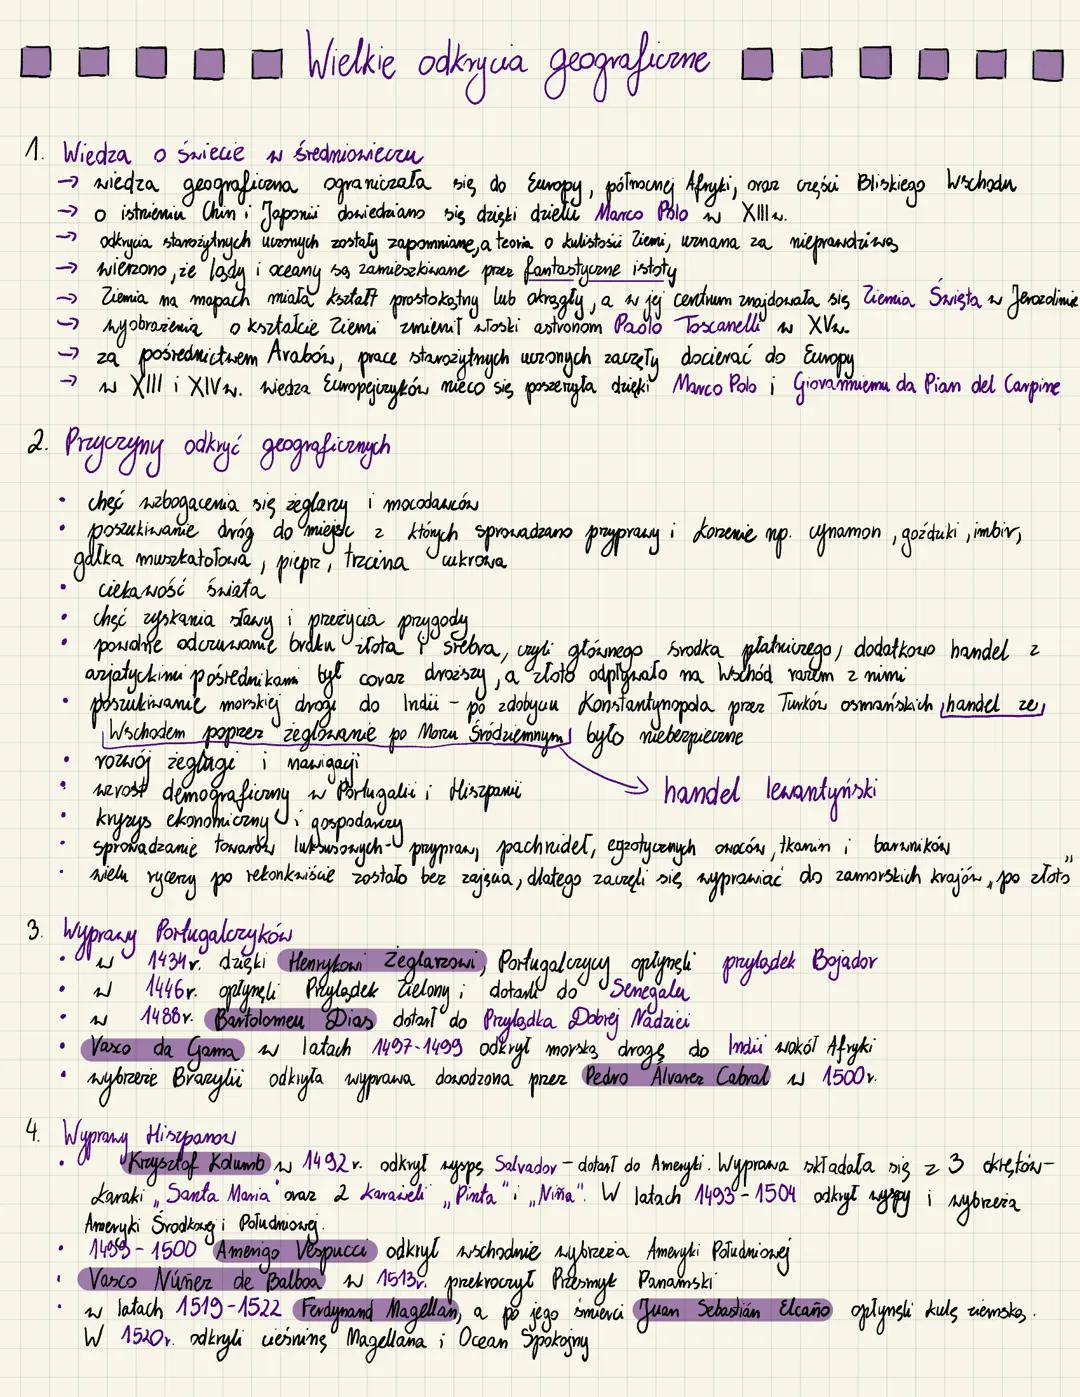 Wielkie odkrycia geograficzne
1. Wiedza o świecie w średniowieczu
→ wiedza geograficzna ograniczała się do Europy, północnej Afryki, oraz części Bliskiego Wschodu
→ o istnieniu Chin i Japonii dowiedziano się dzięki dziełu Marco Polo w XIII w.
→ odkrycia starożytnych uczonych zostały zapomniane, a teoria o kulistości Ziemi, uznana za nieprawdziwą
→ wierzono, że lądy i oceany są zamieszkiwane przez fantastyczne istoty
→ Ziemia na mapach miała kształt prostokątny lub okrągły, a w jej centrum znajdowała się Ziemia Święta w Jerozolimie
→ wyobrażenia o kształcie Ziemi zmienił włoski astronom Paolo Toscanelli w XV w.
→ za pośrednictwem Arabów, prace starożytnych uczonych zaczęły docierać do Europy
→ w XIII i XIV w. wiedza Europejczyków nieco się poszerzyła dzięki Marco Polo i Giovanniemu da Pian del Carpine
2. Przyczyny odkryć geograficznych
• chęć wzbogacenia się żeglarzy i mocodawców
• poszukiwanie dróg do miejsc z których sprowadzano przyprawy i korzenie np. cynamon, goździki, imbir,
gałka muszkatołowa, pieprz, trzcina cukrowa
• ciekawość świata
• chęć zyskania sławy i przeżycia przygody
• powolne odczuwanie braku złota i srebra, czyli głównego środka płatniczego, dodatkowo handel z
azjatyckimi pośrednikami był coraz droższy, a złoto odpływało na Wschód razem z nimi
• poszukiwanie morskiej drogi do Indii - po zdobyciu Konstantynopola przez Turków osmańskich handel ze
Wschodem poprzez żeglowanie po Morzu Śródziemnym było niebezpieczne
• rozwój żeglugi i nawigacji
• wzrost demograficzny w Portugalii i Hiszpanii → handel lewantyński
• kryzys ekonomiczny i gospodarczy
• sprowadzanie towarów luksusowych - przypraw, pachnideł, egzotycznych owoców, tkanin i barwników
• wielu rycerzy po rekonkwiście zostało bez zajęcia, dlatego zaczęli się wyprawiać do zamorskich krajów „po złoto”
3. Wyprawy Portugalczyków
• w 1434 r. dzięki Henrykowi Żeglarzowi, Portugalczycy opłynęli przylądek Bojador
• w 1446 r. opłynęli Przylądek Zielony i dotarli do Senegalu
• w 1488 r. Bartolomeu Dias dotarł do Przylądka Dobrej Nadziei
• Vasco da Gama w latach 1497-1499 odkrył morską drogę do Indii wokół Afryki
• wybrzeże Brazylii odkryła wyprawa dowodzona przez Pedro Álvarez Cabral w 1500 r.
4. Wyprawy Hiszpanow
• Krzysztof Kolumb w 1492 r. odkrył wyspę Salvador - dotarł do Ameryki. Wyprawa składała się z 3 okrętów -
karaki „Santa Maria” oraz 2 karaweli „Pinta” i „Niña”. W latach 1493-1504 odkrył wyspy i wybrzeża
Ameryki Środkowej i Południowej.
• 1499-1500 Amerigo Vespucci odkrył wschodnie wybrzeża Ameryki Południowej
• Vasco Núñez de Balboa w 1513 r. przekroczył Przesmyk Panamski
• w latach 1519-1522 Ferdynand Magellan, a po jego śmierci Juan Sebastián Elcaño opłynęli kulę ziemską.
W 1520 r. odkryli cieśninę Magellana i Ocean Spokojny